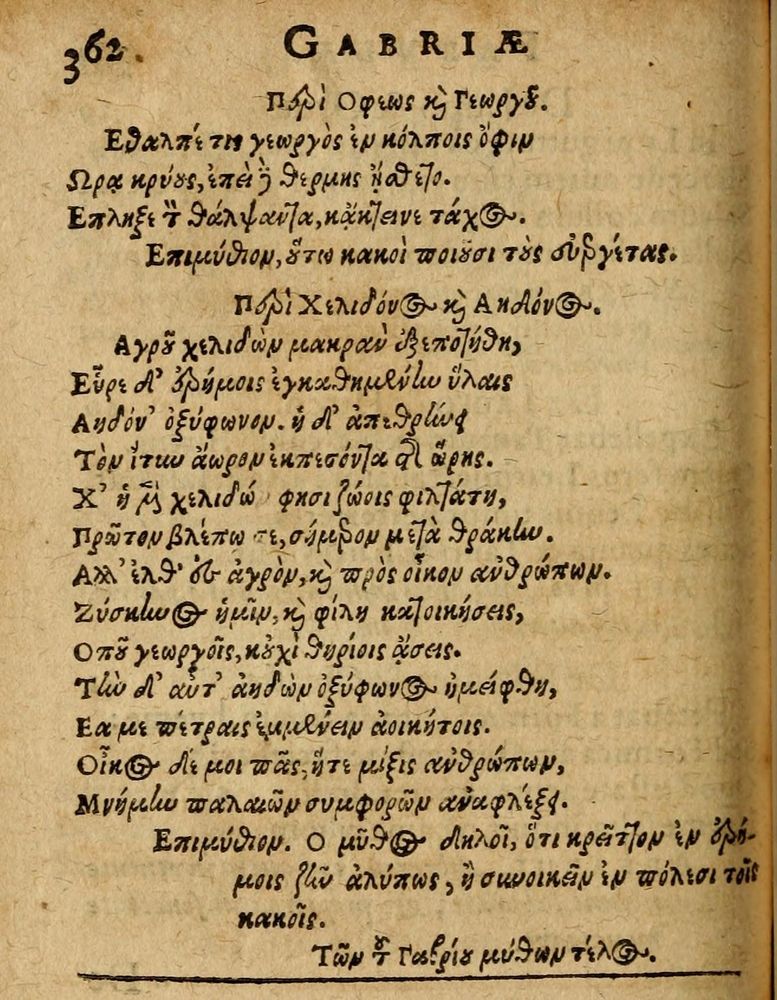 362. GABRIÆ
Περὶ Οφεως καὶ Γεωργοῦ.
Εθαλπέ τις γεωργὸς ἐν κόλποις ὄφιν
Ωρᾳ κρύους, ἐπεὶ δὲ θερμης ᾔσθετο.
Επληξε τὸν θάλψαντα, κᾄκτεινε τάχος.
Επιμύθιον, οὕτω κακοὶ ποιοῦσι τοὺς εὐεργέτας.
Περὶ Χελιδόνος καὶ Αηδόνος.
Αγροῦ χελιδὼν μακρὰν ἐξεποτήθη,
Εὗρε δ' ἐρήμοις ἐγκαθημένην ὕλαις
Αηδόν' ὀξύφωνον. ἡ δ' ἀπεθρήνει
Τὸν ἴτυν ἄωρον ἐκπεσόντα τῆς ὥρης.
Χ' ἡ μὲν χελιδὼ φησι ζώοις φιλτάτη,
Πρῶτον βλέπω σε, σήμερον μετὰ θράκην.
Αλλ' ἐλθ' ἐς ἀγρὸν, καὶ πρὸς οἶκον ανθρώπων.
Σύσκηνος ἡμῖν, καὶ φίλη κατοικήσεις,
Οπου γεωργοῖς, κοὐχὶ θηρίοις ᾄσεις.
Τὴν δ' αὖτ' ἀηδὼν ὀξύφωνος ἠμείφθη,
Εα με πέτραις ἐμμένειν ἀοικήτοις.
Οἶκος δέ μοι πᾶς, ἥτε μίξις ανθρώπων,
Μνήμην παλαιῶν συμφορῶν αναφλέξει.
Επιμύθιον. Ο μῦθος δηλοῖ, ὅτι κρεῖττον ἐν ἐρή-
μοις ζῆν ἀλύπως, ἢ συνοικεῖν ἐν πόλεσι τοῖς
κακοῖς.
Τῶν τοῦ Γαβρίου μύθων τέλος.